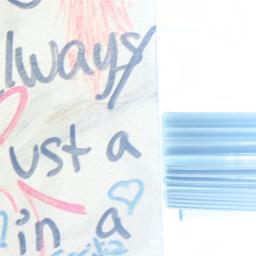 lways
ust a
in a